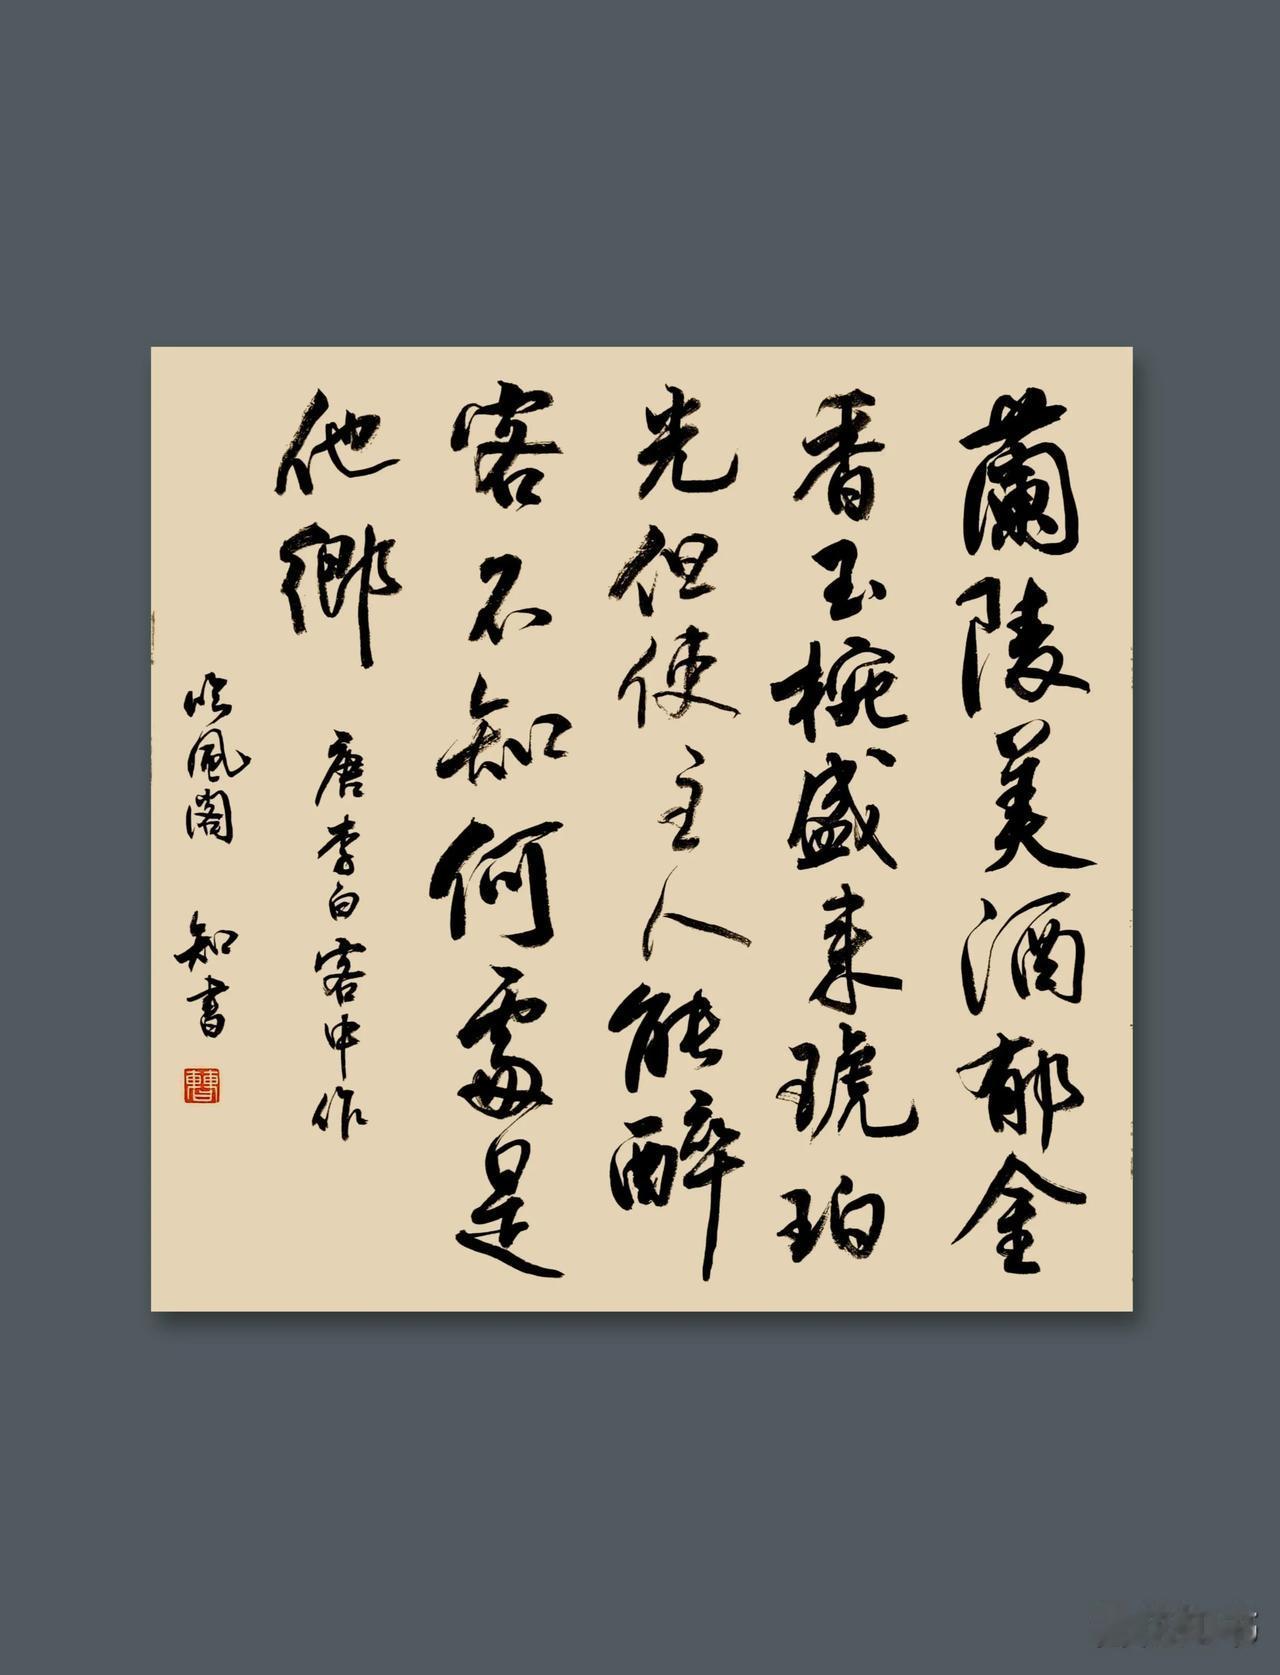 蘭陵美酒郁金
香玉椀盛来琥珀
光但使主人能醉
客不知何處是
他鄉
唐李白客中作
吟風閣 知書